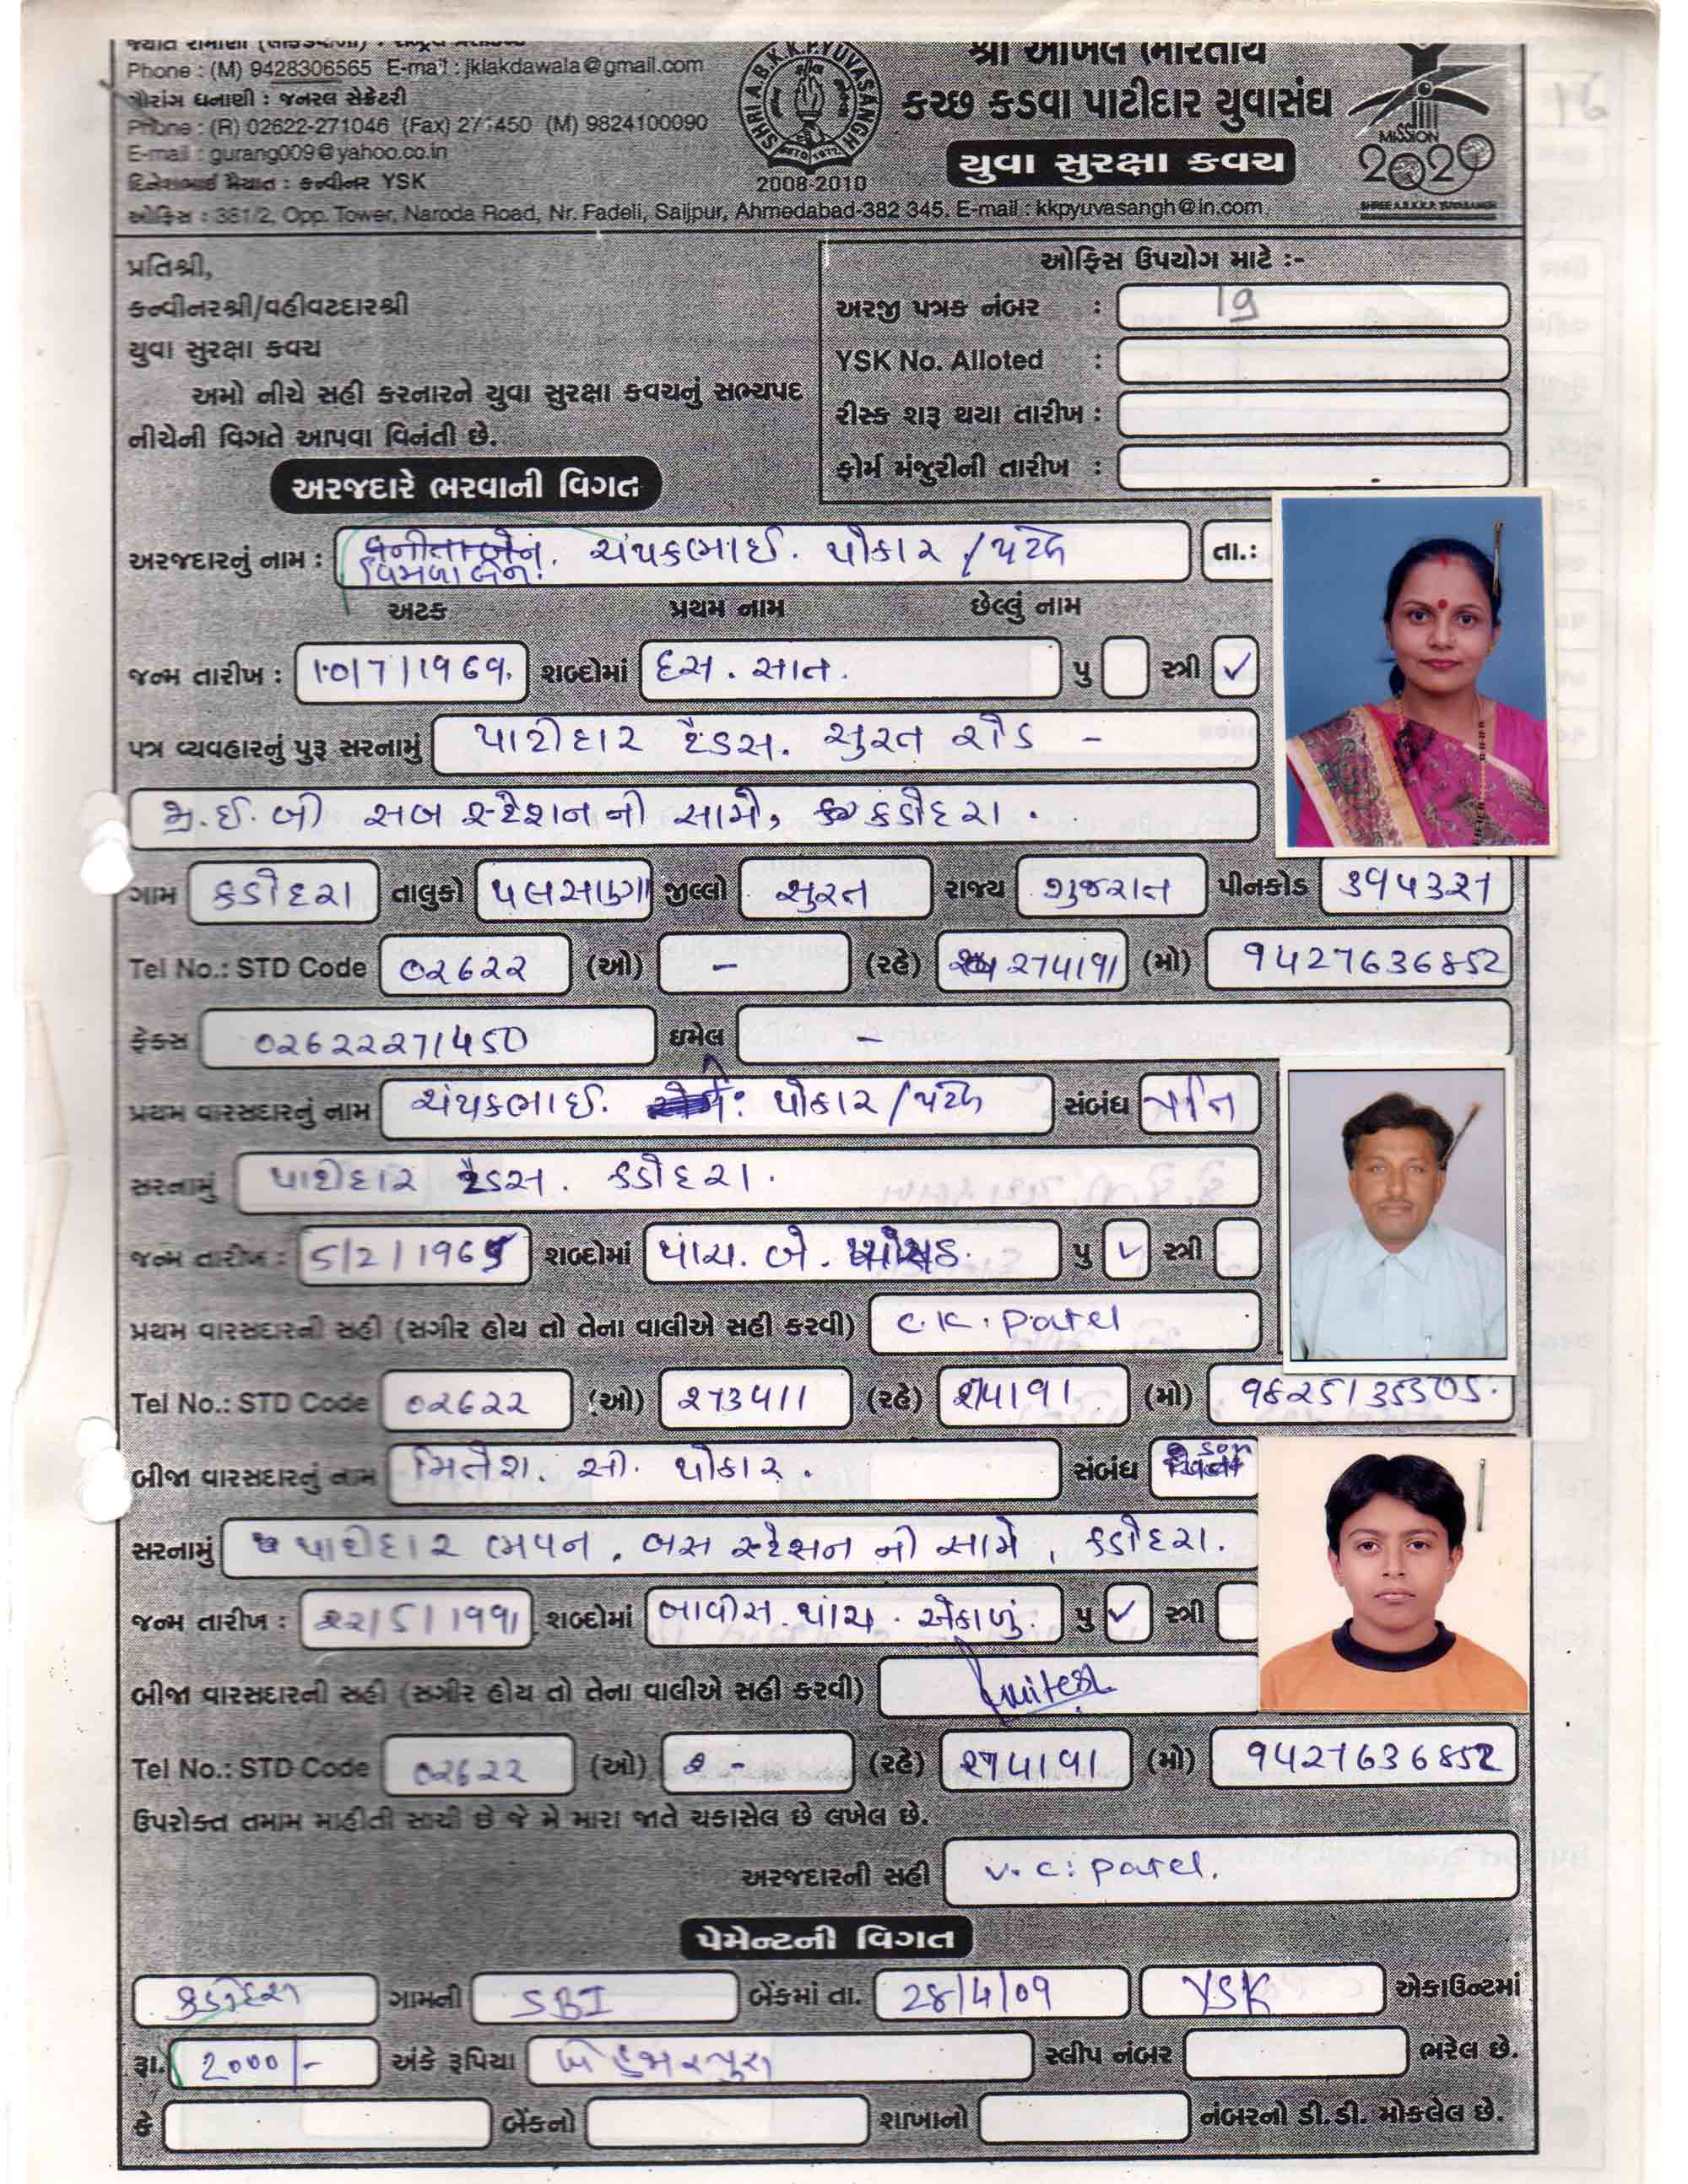 Phone : (M) 9428306565 E-mail : jklakdawala@gmail.com
ગૌરાંગ ધનાણી : જનરલ સેક્રેટરી
Phone : (R) 02622-271046 (Fax) 271450 (M) 9824100090
E-mail : gurang009@yahoo.co.in
કન્વીનર YSK
ઓફિસ : 381/2, Opp. Tower, Naroda Road, Nr. Fadeli, Saijpur, Ahmedabad-382 345. E-mail : kkpyuvasangh@in.com
SHRI A.B.K.K.P. YUVASANGH
2008-2010
શ્રી અખિલ ભારતીય
કચ્છ કડવા પાટીદાર યુવાસંઘ
યુવા સુરક્ષા કવચ
MISSION
2020
પ્રતિશ્રી,
કન્વીનરશ્રી/વહીવટદારશ્રી
યુવા સુરક્ષા કવચ
અમો નીચે સહી કરનારને યુવા સુરક્ષા કવચનું સભ્યપદ
નીચેની વિગતે આપવા વિનંતી છે.
ઓફિસ ઉપયોગ માટે :-
અરજી પત્રક નંબર : 19
YSK No. Alloted :
રીસ્ક શરૂ થયા તારીખ :
ફોર્મ મંજુરીની તારીખ :
અરજદારે ભરવાની વિગત
અરજદારનું નામ : વિમળાબેન. ચંપકભાઈ. પોકાર / પટેલ તા.:
અટક પ્રથમ નામ છેલ્લું નામ
જન્મ તારીખ : 10/7/1969. શબ્દોમાં દસ. સાત. પુ સ્ત્રી ✓
પત્ર વ્યવહારનું પુરૂ સરનામું પાટીદાર ટ્રેડસ. સુરત રોડ -
જી.ઈ.બી સબ સ્ટેશન ની સામે, કડોદરા.
ગામ કડોદરા તાલુકો પલસાણા જીલ્લો સુરત રાજ્ય ગુજરાત પીનકોડ ૩૧૫૩૨૧
Tel No.: STD Code 02622 (ઓ) - (રહે) 274191 (મો) 9427636852
ફેક્સ 02622271450 ઇમેલ -
પ્રથમ વારસદારનું નામ ચંપકભાઈ. પોકાર / પટેલ સંબંધ પતિ
સરનામું પાટીદાર ટ્રેડસ. કડોદરા.
જન્મ તારીખ : 5/2/1965 શબ્દોમાં પાંચ. બે. પુ ✓ સ્ત્રી
પ્રથમ વારસદારની સહી (સગીર હોય તો તેના વાલીએ સહી કરવી) C.K. Patel
Tel No.: STD Code 02622 (ઓ) 273411 (રહે) 274191 (મો) 9825135305.
બીજા વારસદારનું નામ મિતેશ. સી. પોકાર. સંબંધ son
સરનામું પાટીદાર ભવન, બસ સ્ટેસન ની સામે, કડોદરા.
જન્મ તારીખ : 22/5/1991 શબ્દોમાં બાવીસ. પાંચ. એકાણું. પુ ✓ સ્ત્રી
બીજા વારસદારની સહી (સગીર હોય તો તેના વાલીએ સહી કરવી) mitesh
Tel No.: STD Code 02622 (ઓ) - (રહે) 274191 (મો) 9427636852
ઉપરોક્ત તમામ માહીતી સાચી છે જે મે મારા જાતે ચકાસેલ છે લખેલ છે.
અરજદારની સહી v. c. patel.
પેમેન્ટની વિગત
કડોદરા ગામની SBI બેંકમાં તા. 28/4/09 YSK એકાઉન્ટમાં
રૂા. 2000/- અંકે રૂપિયા બે હજાર પુરા સ્લીપ નંબર ભરેલ છે.
કે બેંકનો શાખાનો નંબરનો ડી.ડી. મોકલેલ છે.